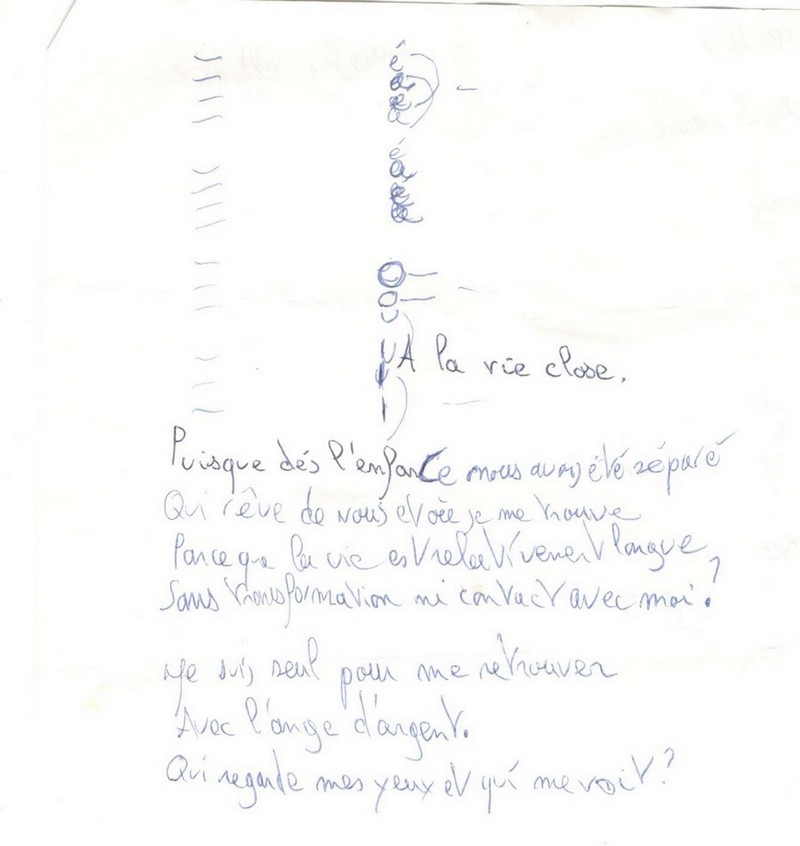 é
a
e
a
é
a
e
e
A la vie close.
Puisque dés l'enfance nous avons été séparé
Qui rêve de nous et où je me trouve
Parce que la vie est relativement longue
Sans transformation ni contact avec moi ?
Je suis seul pour me retrouver
Avec l'ange d'argent.
Qui regarde mes yeux et qui me voit ?